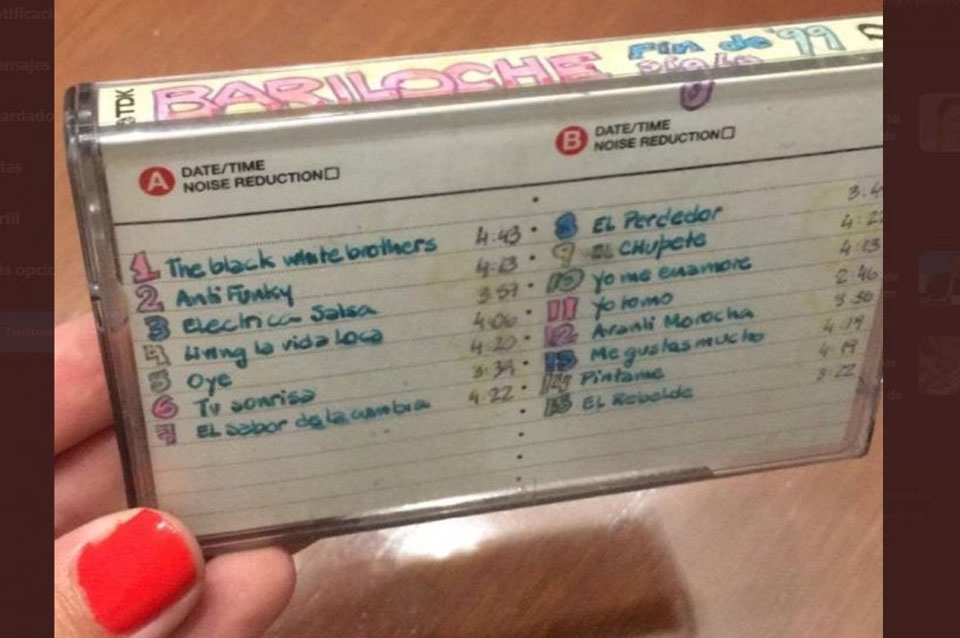 TDK
BARILOCHE fin de '99
siglo
A DATE/TIME
NOISE REDUCTION
1 The black white brothers 4:43
2 Anti Funky 4:13
3 Electrica Salsa 3:57
4 Living la vida Loca 4:06
5 Oye 4:20
6 Tu sonrisa 3:39
7 EL sabor de la cumbia 4:22
B DATE/TIME
NOISE REDUCTION
8 EL Perdedor 3:4
9 EL CHupete 4:22
10 Yo me enamore 4:13
11 Yo tomo 2:46
12 Aranli Morocha 3:36
13 Me gustas mucho 4:19
14 Pintame 4:19
15 EL Rebelde 3:22